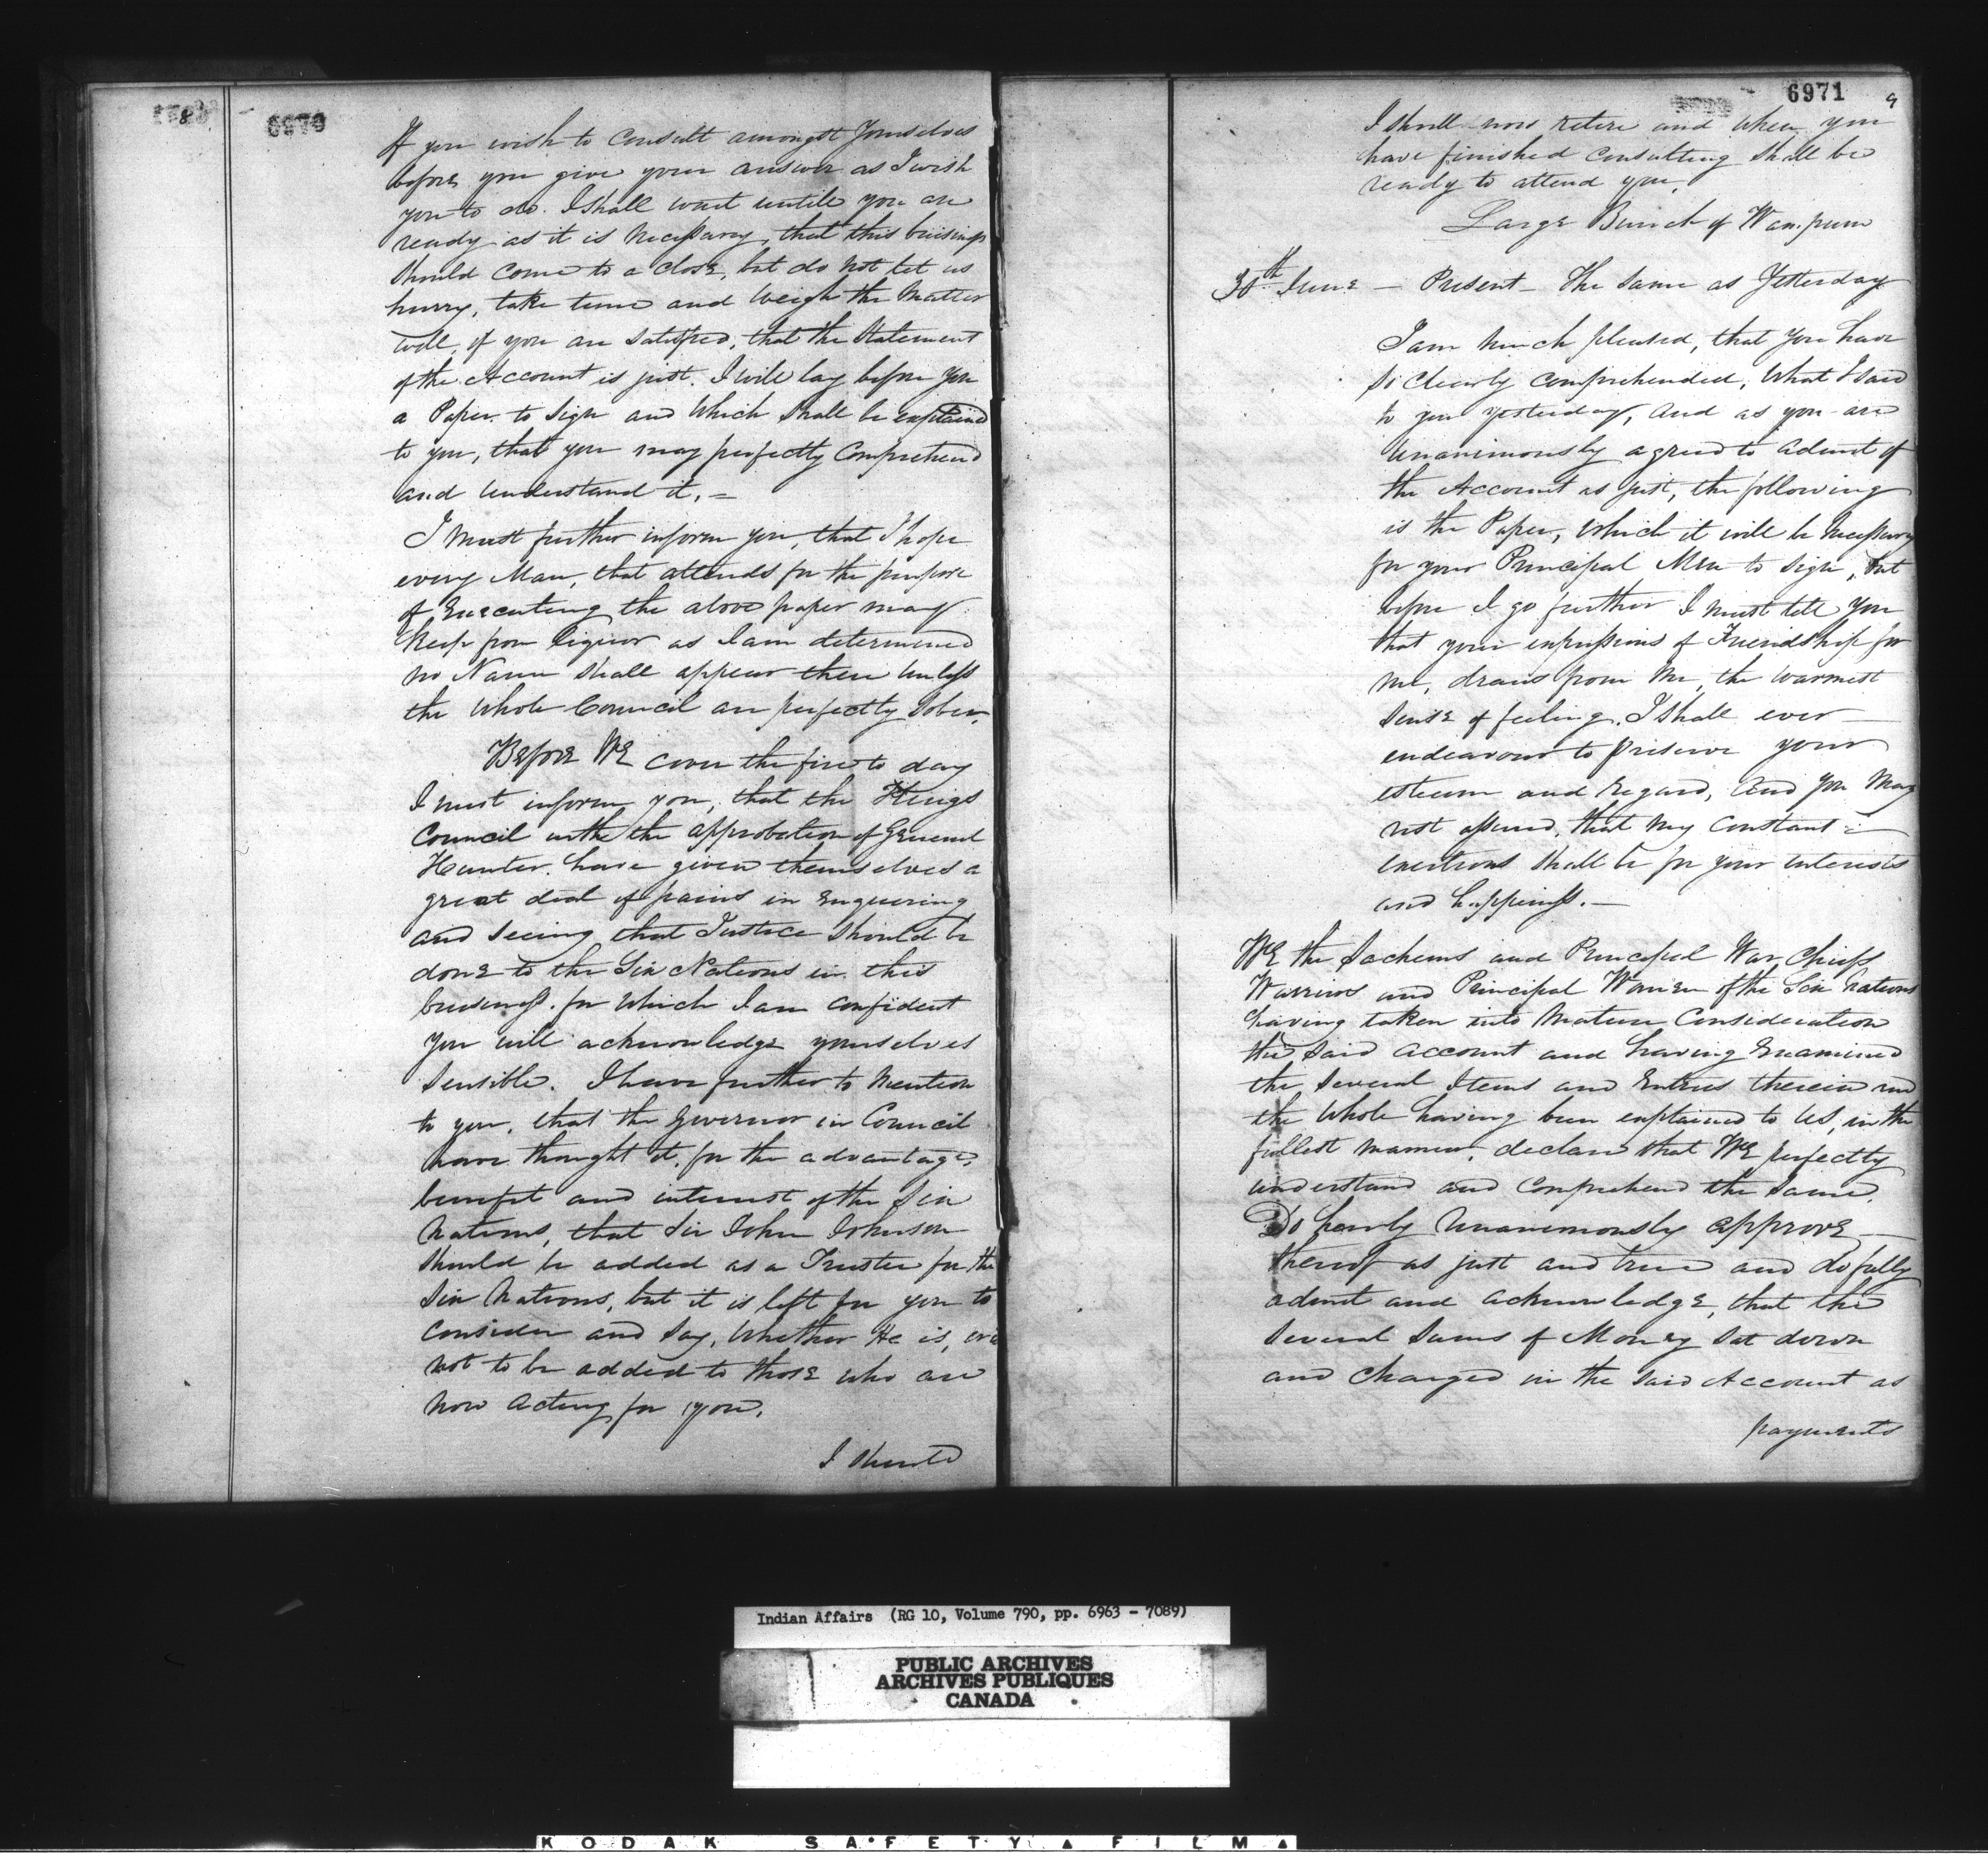 8
6970
If you wish to Consult amongst Yourselves
before you give your answer as I wish
you to do. I shall wait untile you are
ready as it is necessary, that this business
should come to a close, but do not let us
hurry, take time and weigh the Matter
well, if you are satisfied, that the Statement
of the Account is just. I will lay before you
a Paper to sign and which shall be explained
to you, that you may perfectly Comprehend
and understand it. =
I must further inform you, that I hope
every Man, that attends for the purpose
of Executing the above paper may
keep from liquor as I am determined
no Name shall appear there unless
the whole Council are perfectly sober.
Before WE cover the fire to day
I must inform you, that the Kings
Council with the approbation of General
Hunter have given themselves a
great deal of pains in Enquiring
and seeing that Justice should be
done to the Six Nations in this
business. for which I am confident
you will acknowledge yourselves
sensible. I have further to mention
to you, that the Governor in Council
have thought it, for the advantage,
benefit and interest of the Six
Nations, that Sir John Johnson
should be added as a Trustee for the
Six Nations, but it is left for you to
consider and say, whether He is, or is
not to be added to those who are
now acting for you.
I should
6971
9
I shall now retire and when you
have finished consulting shall be
ready to attend you.
Large Bunch of Wampum
30th June — Present — The same as Yesterday
I am much pleased, that you have
so clearly comprehended, what I said
to you yesterday, and as you are
unanimously agreed to admit of
the Account as just, the following
is the Paper, which it will be necessary
for your Principal Men to sign, but
before I go further I must tell you
that your expressions of Friendship for
me, draws from me, the warmest
sense of feeling. I shall ever
endeavour to preserve your
esteem and regard, and you may
rest assured, that my constant
exertions shall be for your interests
and happiness. —
WE the Sachems and Principal War Chiefs
Warriors and Principal Women of the Six Nations
having taken into mature Consideration
the said account and having Examined
the several Items and Entries therein and
the whole having been explained to US, in the
fullest manner, declare that WE perfectly
understand and comprehend the same.
Do hereby unanimously approve —
thereof as just and true and do fully
admit and acknowledge, that the
several sums of Money sat down
and charged in the said Account as
payments
Indian Affairs (RG 10, Volume 790, pp. 6963 - 7089)
PUBLIC ARCHIVES
ARCHIVES PUBLIQUES
CANADA
KODAK SAFETY FILM